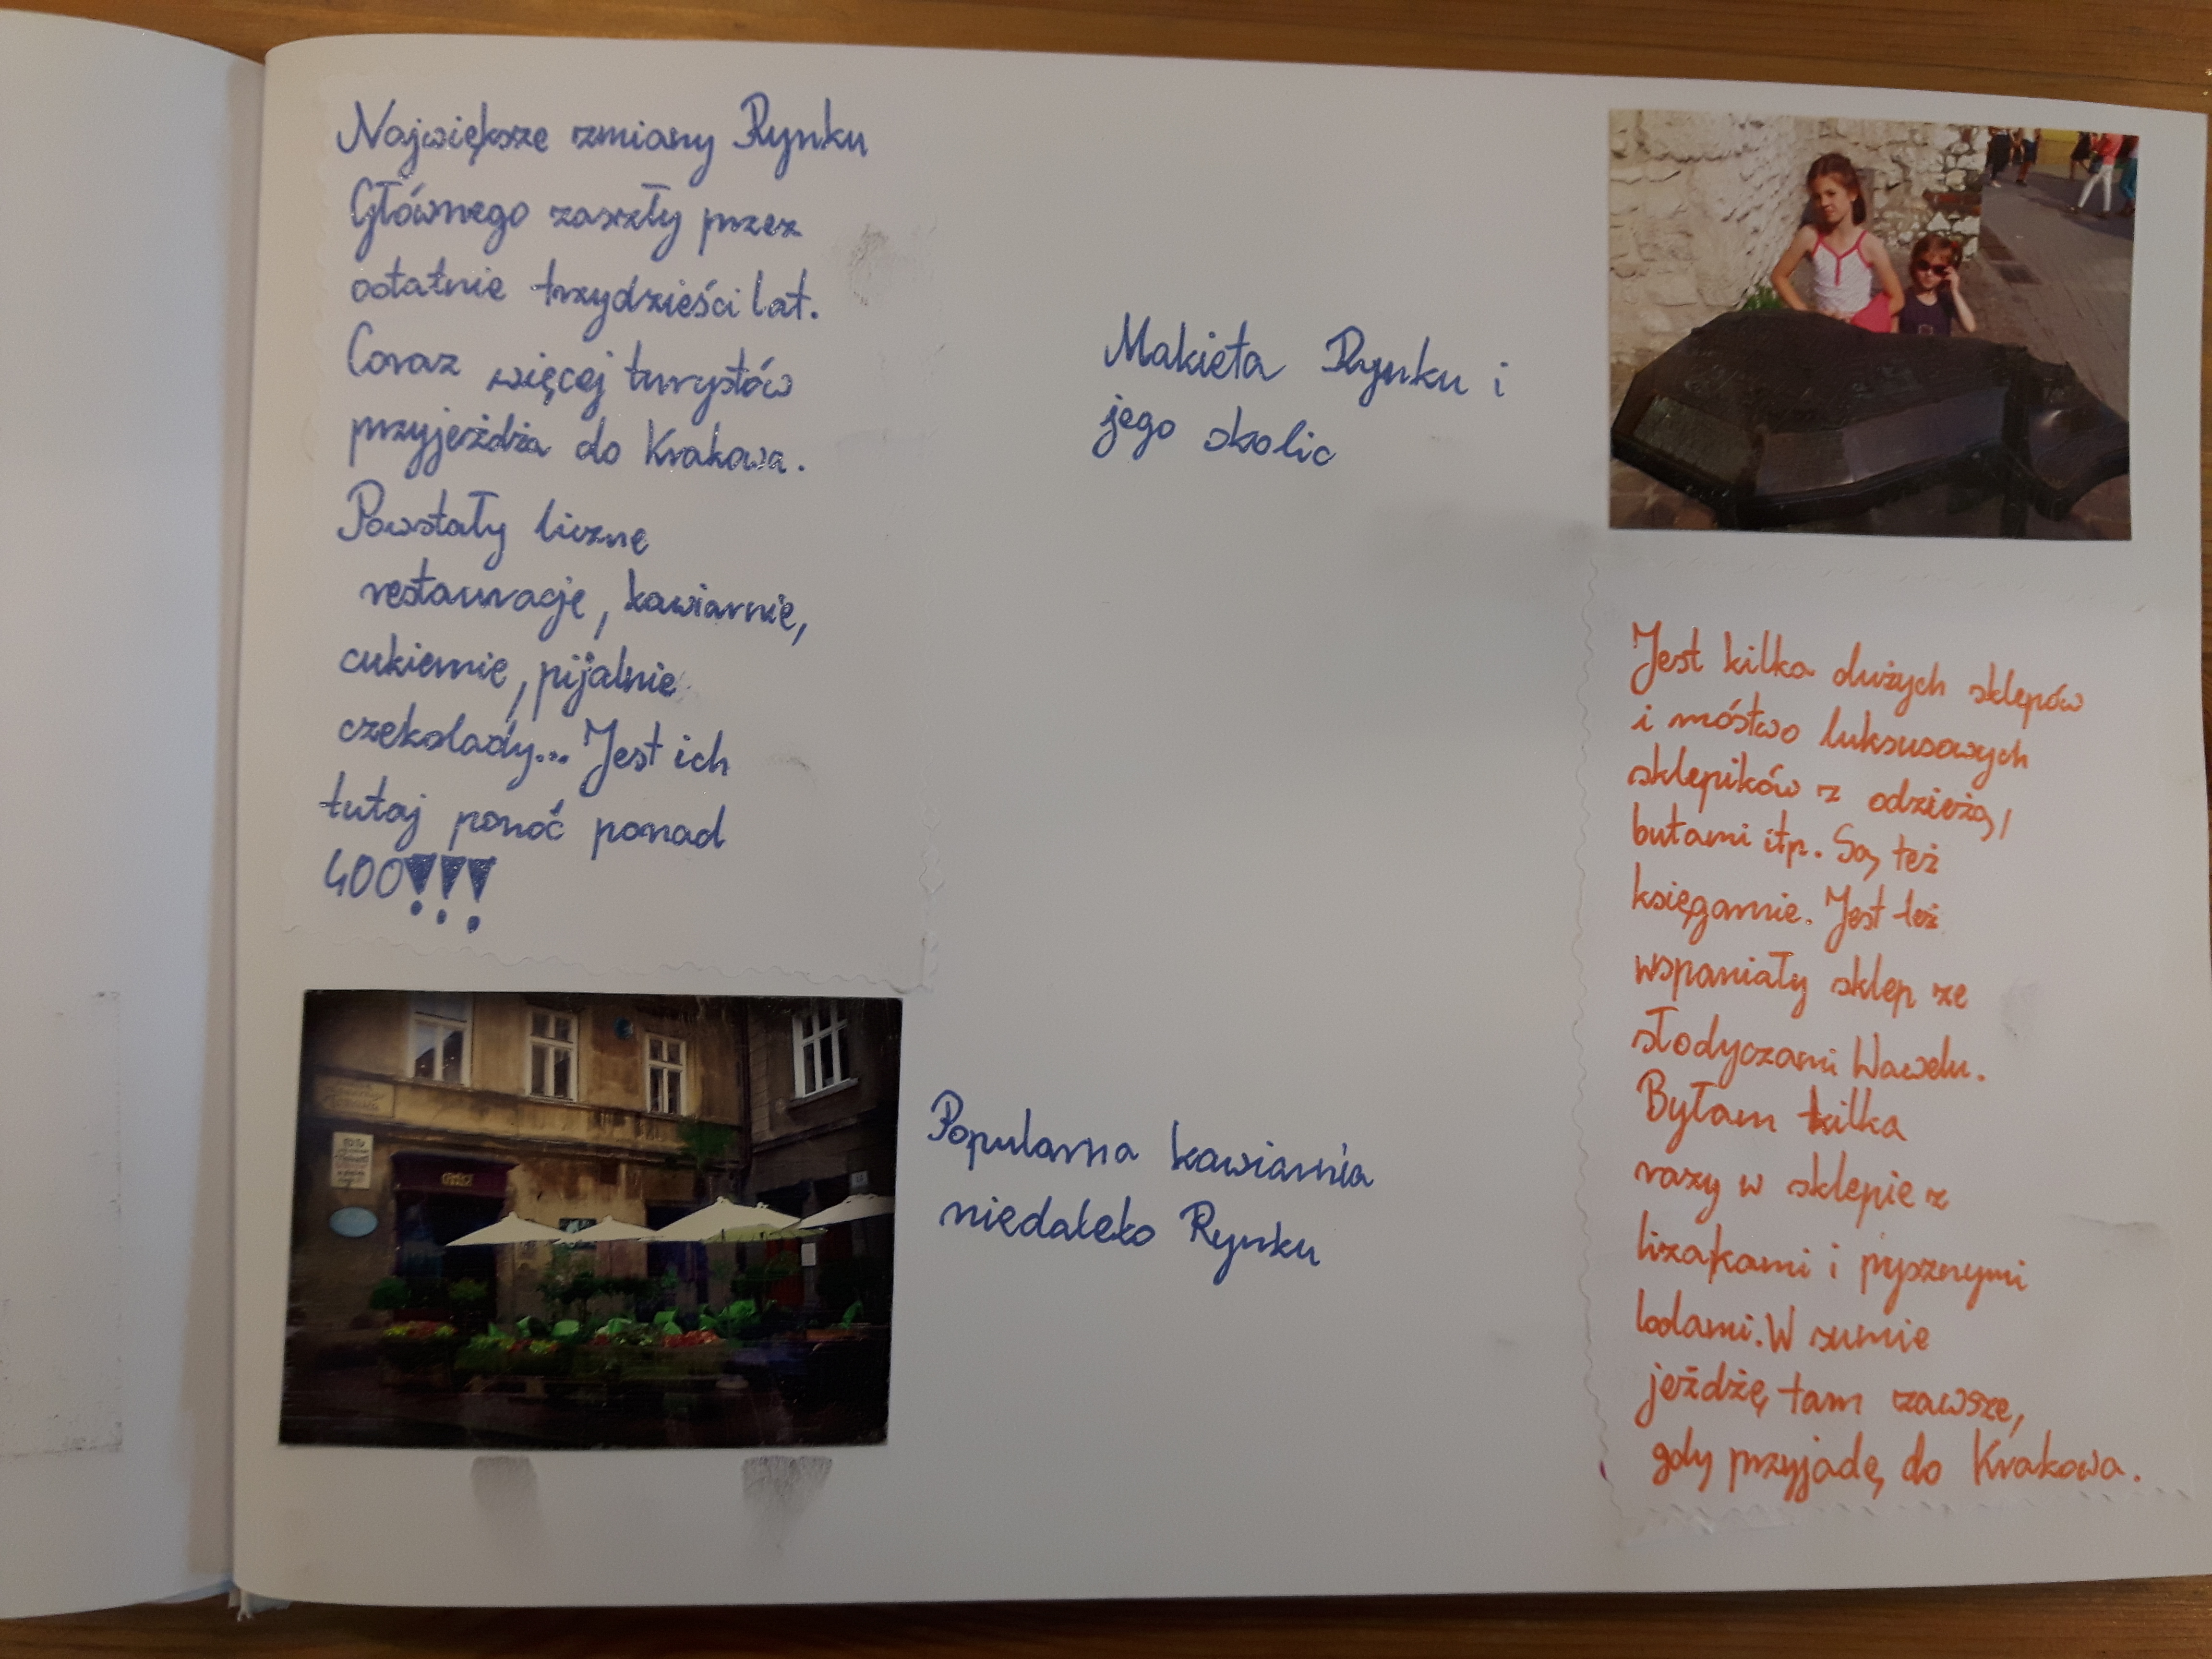 Największe zmiany Rynku
Głównego zaszły przez
ostatnie trzydzieści lat.
Coraz więcej turystów
przyjeżdża do Krakowa.
Powstały liczne
restauracje, kawiarnie,
cukiernie, pijalnie
czekolady... Jest ich
tutaj ponoć ponad
400!!!
Makieta Rynku i
jego okolic
Popularna kawiarnia
niedaleko Rynku
Jest kilka dużych sklepów
i móstwo luksusowych
sklepików z odzieżą,
butami itp. Są też
księgarnie. Jest też
wspaniały sklep ze
słodyczami Wawelu.
Byłam kilka
razy w sklepie z
lizakami i pysznymi
lodami. W sumie
jeżdżę tam zawsze,
gdy przyjadę do Krakowa.